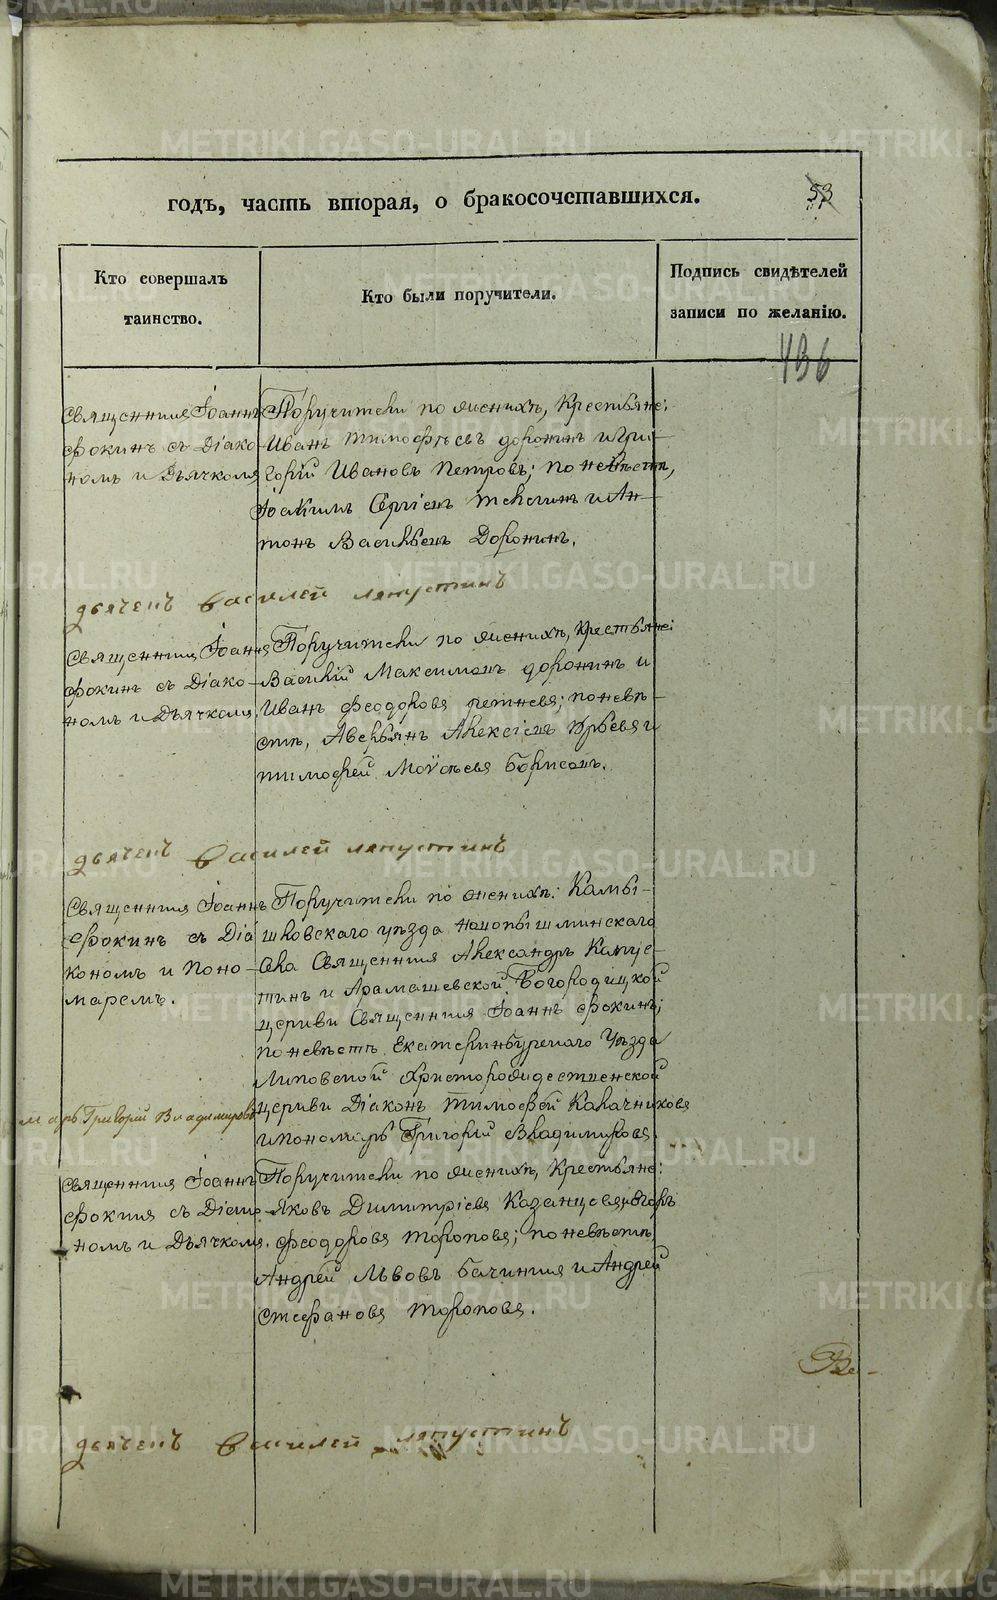 годъ, часть вторая, о бракосочетавшихся.
53
Кто совершалъ
таинство.
Кто были поручители.
Подпись свидѣтелей
записи по желанію.
436
Священникъ Іоаннъ
Фокинъ съ Діако-
номъ и Дьячкомъ
Поручители по женихѣ, Крестьяне:
Иванъ Тимофѣевъ Доронинъ и Гри-
горій Ивановъ Петровъ; по невѣстѣ,
Іоакимъ Сергіевъ и Ан-
тонъ Васильевъ Доронинъ.
дьячекъ Василей Ляпустинъ
Священникъ Іоаннъ
Фокинъ съ Діако-
номъ и Дьячкомъ.
Поручители по женихѣ, Крестьяне:
Василій Максимовъ Доронинъ и
Иванъ Феодоровъ по невѣ-
стѣ, Аверьянъ Алексіевъ Юрьевъ и
Тимофей Моѵсѣевъ Борисовъ.
дьячекъ Василей Ляпустинъ
Священникъ Іоаннъ
Фокинъ съ Діа
кономъ и Поно-
маремъ.
Поручители по женихѣ: Камы-
шловскаго уѣзда Новопышминскаго
Села Священникъ Александръ Капус-
тинъ и Арамашевской Богородицкой
церкви Священникъ Іоаннъ Фокинъ;
по невѣстѣ Екатеринбургскаго Уѣзда
Липовской Христорождественской
церкви Діаконъ Тимофей Калачниковъ
и пономарь Григорій Владимировъ.
марь Григорій Владимировъ
Священникъ Іоаннъ
Фокинъ съ Діако-
номъ и Дьячкомъ.
Поручители по женихѣ, Крестьяне:
Яковъ Димитріевъ Казанцовъ и Егоръ
Феодоровъ Тороповъ; по невѣстѣ,
Андрей Львовъ Бачининъ и Андрей
Стефановъ Тороповъ.
дьячекъ Василей Ляпустинъ
METRIKI.GASO-URAL.RU